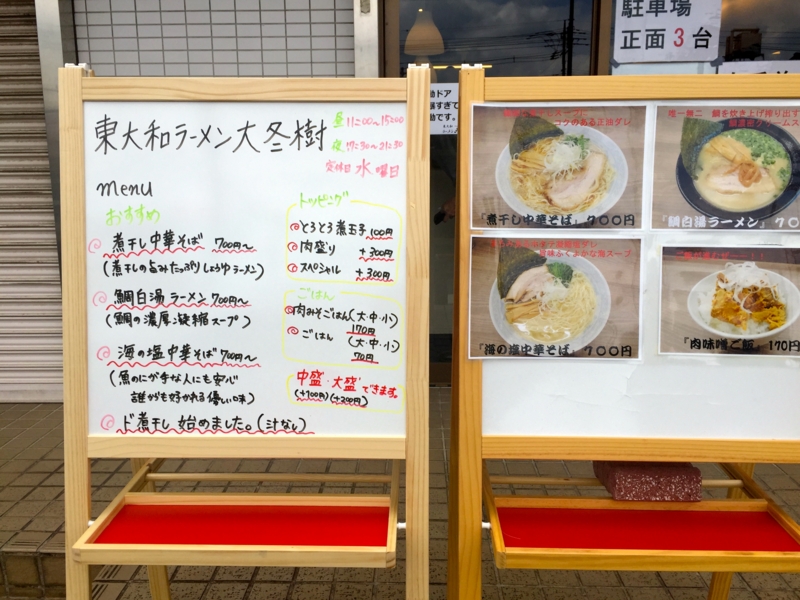 東大和ラーメン大冬樹
昼11:00~15:00
夜17:30~21:30
定休日 水曜日
menu
おすすめ
煮干し中華そば 700円~
(煮干しの旨みたっぷりしょうゆラーメン)
鯛白湯ラーメン 700円~
(鯛の濃厚凝縮スープ)
海の塩中華そば 700円~
(魚のにが手な人にも安心
誰からも好かれる優しい味)
ド煮干し 始めました。(汁なし)
トッピング
とろとろ煮玉子 100円
肉盛り +300円
スペシャル +300円
ごはん
肉みそごはん(大・中・小)
170円
ごはん (大・中・小)
70円
中盛・大盛できます。
(+100円)(+200円)
駐車場
正面3台
コクのある正油ダレ
『煮干し中華そば』700円
唯一無二 鯛を炊き上げ搾り出す
『鯛白湯ラーメン』70
味ふくよかな海スープ
『海の塩中華そば』700円
『肉味噌ご飯』170円